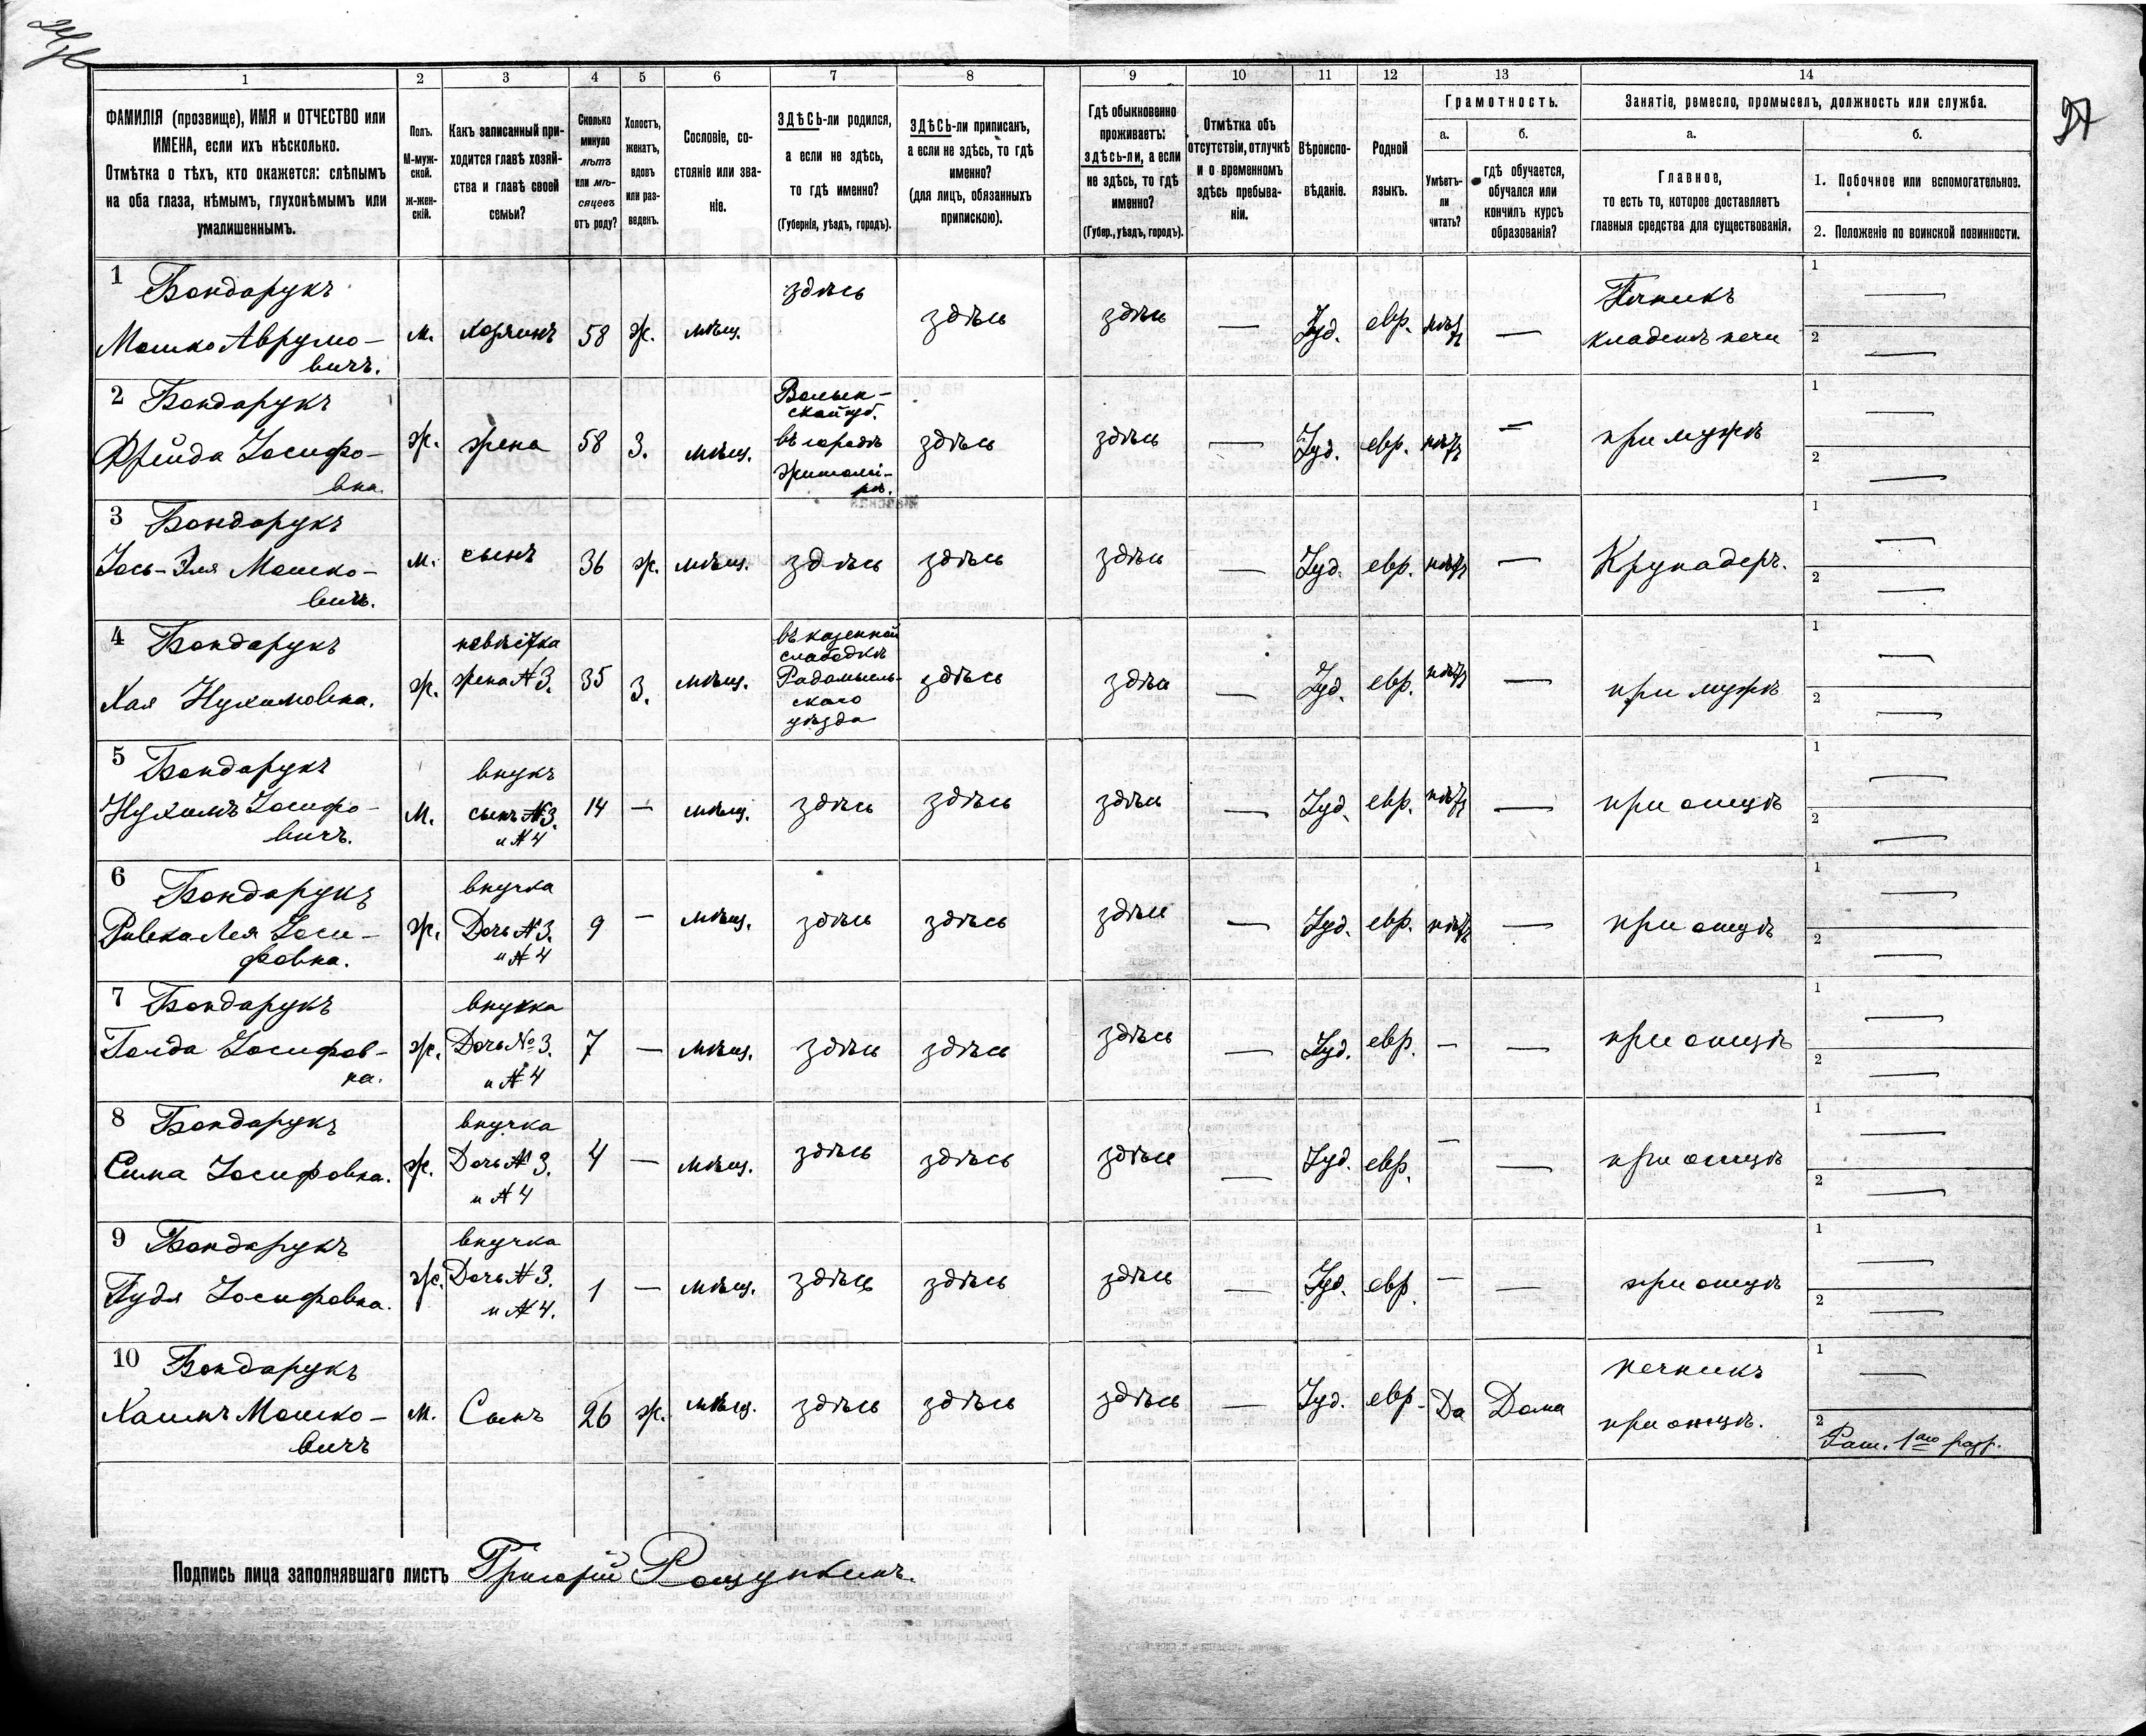 27
1 2 3 4 5 6 7 8 9 10 11 12 13 14
ФАМИЛІЯ (прозвище), ИМЯ и ОТЧЕСТВО или
ИМЕНА, если ихъ нѣсколько.
Отмѣтка о тѣхъ, кто окажется: слѣпымъ
на оба глаза, нѣмымъ, глухонѣмымъ или
умалишеннымъ.
Полъ.
М-муж-
ской.
ж-жен-
скій.
Какъ записанный при-
ходится главѣ хозяй-
ства и главѣ своей
семьи?
Сколько
минуло
лѣтъ
или мѣ-
сяцевъ
отъ роду?
Холостъ,
женатъ,
вдовъ
или раз-
веденъ.
Сословіе, со-
стояніе или зва-
ніе.
ЗДѢСЬ-ли родился,
а если не здѣсь,
то гдѣ именно?
(Губернія, уѣздъ, городъ).
ЗДѢСЬ-ли приписанъ,
а если не здѣсь, то гдѣ
именно?
(для лицъ, обязанныхъ
припискою).
Гдѣ обыкновенно
проживаетъ:
здѣсь-ли, а если
не здѣсь, то гдѣ
именно?
(Губер., уѣздъ, городъ).
Отмѣтка объ
отсутствіи, отлучкѣ
и о временномъ
здѣсь пребыва-
ніи.
Вѣроиспо-
вѣданіе.
Родной
языкъ.
Грамотность.
а.
Умѣетъ-
ли
читать?
б.
гдѣ обучается,
обучался или
кончилъ курсъ
образованія?
Занятіе, ремесло, промыселъ, должность или служба.
а.
Главное,
то есть то, которое доставляетъ
главныя средства для существованія.
б.
1. Побочное или вспомогательное.
2. Положеніе по воинской повинности.
1 Бондарукъ
Мошко Аврумо-
вичъ.
м. хозяинъ 58 ж. мѣщ. здѣсь здѣсь здѣсь — Іуд. евр. нѣтъ —
Печникъ
кладетъ печи
1 —
2 —
2 Бондарукъ
Фрейда Іосифо-
вна.
ж. жена 58 З. мѣщ.
Волын-
ской губ.
въ городѣ
Житомі-
рѣ.
здѣсь здѣсь — Іуд. евр. нѣтъ — при мужѣ
1 —
2 —
3 Бондарукъ
Іось-Эля Мошко-
вичъ.
м. сынъ 36 ж. мѣщ. здѣсь здѣсь здѣсь — Іуд. евр. нѣтъ — Крупадеръ.
1 —
2 —
4 Бондарукъ
Хая Нухимовна.
ж.
невѣстка
жена № 3.
35 З. мѣщ.
въ казенной
слабодкѣ
Радомысль-
скаго
уѣзда
здѣсь здѣсь — Іуд. евр. нѣтъ — при мужѣ
1 —
2 —
5 Бондарукъ
Нухимъ Іосифо-
вичъ.
м.
внукъ
сынъ № 3.
и № 4
14 — мѣщ. здѣсь здѣсь здѣсь — Іуд. евр. нѣтъ — при отцѣ
1 —
2 —
6 Бондарукъ
Ривка Лея Іоси-
фовна.
ж.
внучка
Дочь № 3.
и № 4
9 — мѣщ. здѣсь здѣсь здѣсь — Іуд. евр. нѣтъ — при отцѣ
1 —
2 —
7 Бондарукъ
Голда Іосифов-
на.
ж.
внучка
Дочь № 3.
и № 4
7 — мѣщ. здѣсь здѣсь здѣсь — Іуд. евр. — — при отцѣ
1 —
2 —
8 Бондарукъ
Сима Іосифовна.
ж.
внучка
Дочь № 3.
и № 4
4 — мѣщ. здѣсь здѣсь здѣсь — Іуд. евр. — — при отцѣ
1 —
2 —
9 Бондарукъ
Іосифовна.
ж.
внучка
Дочь № 3.
и № 4.
1 — мѣщ. здѣсь здѣсь здѣсь — Іуд. евр. — — при отцѣ
1 —
2 —
10 Бондарукъ
Хаимъ Мошко-
вичъ
м. Сынъ 26 ж. мѣщ. здѣсь здѣсь здѣсь — Іуд. евр. Да Дома
печникъ
при отцѣ.
1 —
2 Рат. 1аго разр.
Подпись лица заполнявшаго листъ Григорій